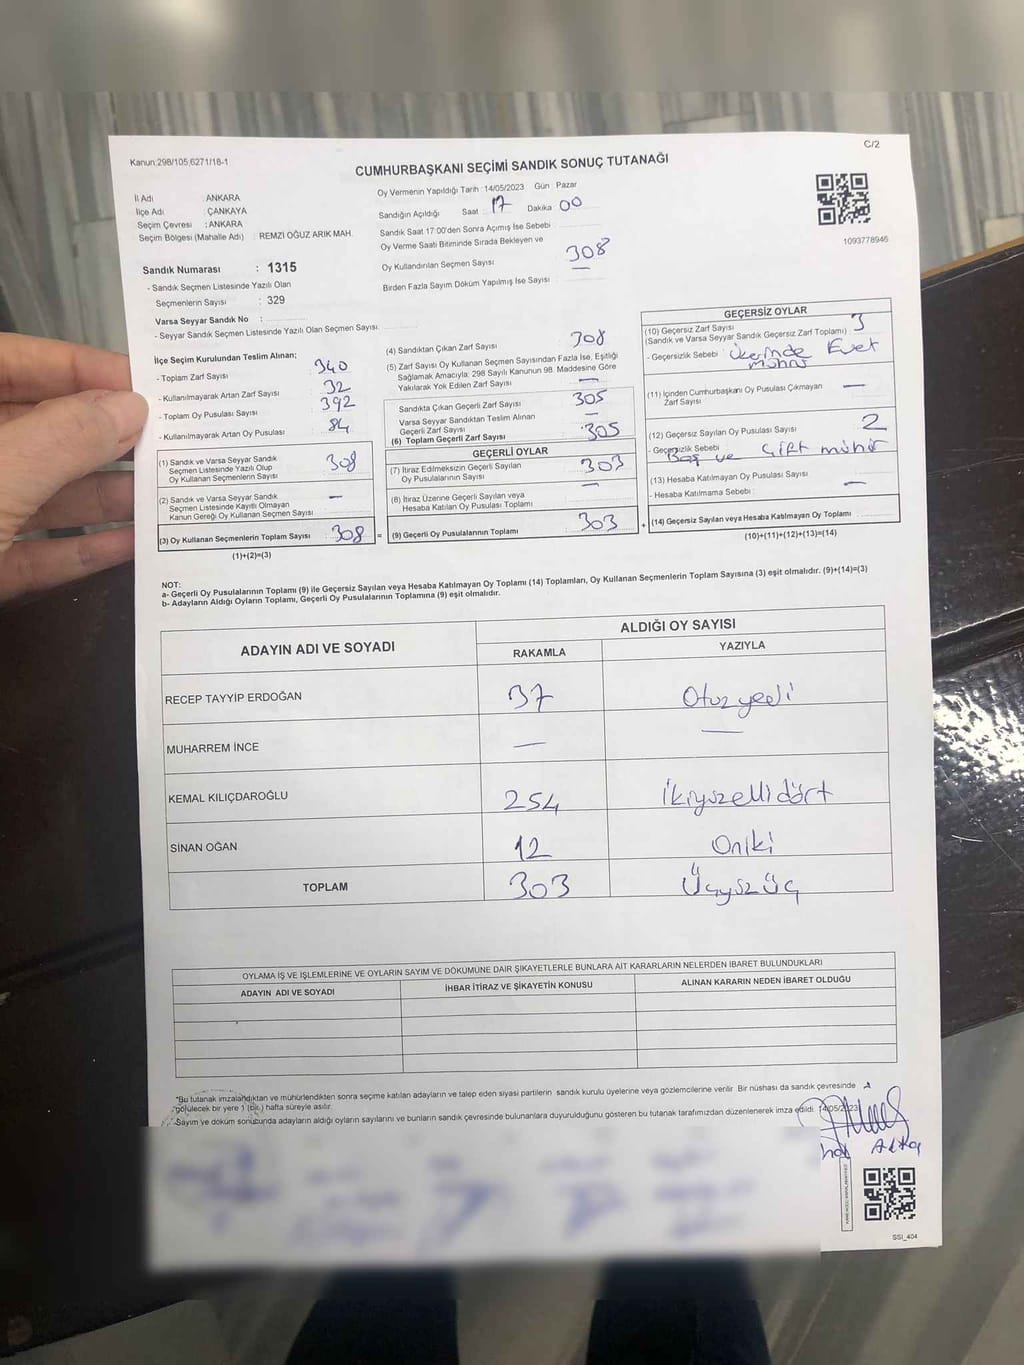 Kanun;298/105,6271/18-1
C/2
CUMHURBAŞKANI SEÇİMİ SANDIK SONUÇ TUTANAĞI
İl Adı : ANKARA
İlçe Adı : ÇANKAYA
Seçim Çevresi : ANKARA
Seçim Bölgesi (Mahalle Adı) : REMZİ OĞUZ ARIK MAH.
Sandık Numarası : 1315
- Sandık Seçmen Listesinde Yazılı Olan
Seçmenlerin Sayısı : 329
Varsa Seyyar Sandık No :
- Seyyar Sandık Seçmen Listesinde Yazılı Olan Seçmen Sayısı
Oy Vermenin Yapıldığı Tarih :14/05/2023 Gün : Pazar
Sandığın Açıldığı Saat : 17 Dakika : 00
Sandık Saat 17:00'den Sonra Açımış İse Sebebi
Oy Verme Saati Bitiminde Sırada Bekleyen ve
Oy Kullandırılan Seçmen Sayısı 308
Birden Fazla Sayım Döküm Yapılmış İse Sayısı —
1093778946
İlçe Seçim Kurulundan Teslim Alınan;
- Toplam Zarf Sayısı : 340
- Kullanılmayarak Artan Zarf Sayısı : 32
- Toplam Oy Pusulası Sayısı : 392
- Kullanılmayarak Artan Oy Pusulası : 84
(1) Sandık ve Varsa Seyyar Sandık
Seçmen Listesinde Yazılı Olup
Oy Kullanan Seçmenlerin Sayısı : 308
(2) Sandık ve Varsa Seyyar Sandık
Seçmen Listesinde Kayıtlı Olmayan
Kanun Gereği Oy Kullanan Seçmen Sayısı : —
(3) Oy Kullanan Seçmenlerin Toplam Sayısı : 308 =
(1)+(2)=(3)
(4) Sandıktan Çıkan Zarf Sayısı : 308
(5) Zarf Sayısı Oy Kullanan Seçmen Sayısından Fazla İse, Eşitliği
Sağlamak Amacıyla, 298 Sayılı Kanunun 98. Maddesine Göre
Yakılarak Yok Edilen Zarf Sayısı : —
Sandıkta Çıkan Geçerli Zarf Sayısı : 305
Varsa Seyyar Sandıktan Teslim Alınan
Geçerli Zarf Sayısı : —
(6) Toplam Geçerli Zarf Sayısı : 305
GEÇERLİ OYLAR
(7) İtiraz Edilmeksizin Geçerli Sayılan
Oy Pusulalarının Sayısı : 303
(8) İtiraz Üzerine Geçerli Sayılan veya
Hesaba Katılan Oy Pusulası Toplamı : —
(9) Geçerli Oy Pusulalarının Toplamı : 303 +
GEÇERSİZ OYLAR
(10) Geçersiz Zarf Sayısı
(Sandık ve Varsa Seyyar Sandık Geçersiz Zarf Toplamı) : 3
- Geçersizlik Sebebi : Üzerinde Evet
Mührü
(11) İçinden Cumhurbaşkanı Oy Pusulası Çıkmayan
Zarf Sayısı : —
(12) Geçersiz Sayılan Oy Pusulası Sayısı : 2
- Geçersizlik Sebebi : Boş ve Çift mühür
(13) Hesaba Katılmayan Oy Pusulası Sayısı : —
- Hesaba Katılmama Sebebi :
(14) Geçersiz Sayılan veya Hesaba Katılmayan Oy Toplamı
(10)+(11)+(12)+(13)=(14)
NOT:
a- Geçerli Oy Pusulalarının Toplamı (9) ile Geçersiz Sayılan veya Hesaba Katılmayan Oy Toplamı (14) Toplamları, Oy Kullanan Seçmenlerin Toplam Sayısına (3) eşit olmalıdır. (9)+(14)=(3)
b- Adayların Aldığı Oyların Toplamı, Geçerli Oy Pusulalarının Toplamına (9) eşit olmalıdır.
ADAYIN ADI VE SOYADI ALDIĞI OY SAYISI
RAKAMLA YAZIYLA
RECEP TAYYİP ERDOĞAN 37 Otuz yedi
MUHARREM İNCE — —
KEMAL KILIÇDAROĞLU 254 İkiyüzellidört
SİNAN OĞAN 12 Oniki
TOPLAM 303 Üçyüzüç
OYLAMA İŞ VE İŞLEMLERİNE VE OYLARIN SAYIM VE DÖKÜMÜNE DAİR ŞİKAYETLERLE BUNLARA AİT KARARLARIN NELERDEN İBARET BULUNDUKLARI
ADAYIN ADI VE SOYADI İHBAR İTİRAZ VE ŞİKAYETİN KONUSU ALINAN KARARIN NEDEN İBARET OLDUĞU
*Bu tutanak imzalandıktan ve mühürlendikten sonra seçime katılan adayların ve talep eden siyasi partilerin sandık kurulu üyelerine veya gözlemcilerine verilir Bir nüshası da sandık çevresinde
görülecek bir yere 1 (bir) hafta süreyle asılır.
Sayım ve döküm sonucunda adayların aldığı oyların sayılarını ve bunların sandık çevresinde bulunanlara duyurulduğunu gösteren bu tutanak tarafımızdan düzenlenerek imza edildi. 14/05/2023
SSI_404